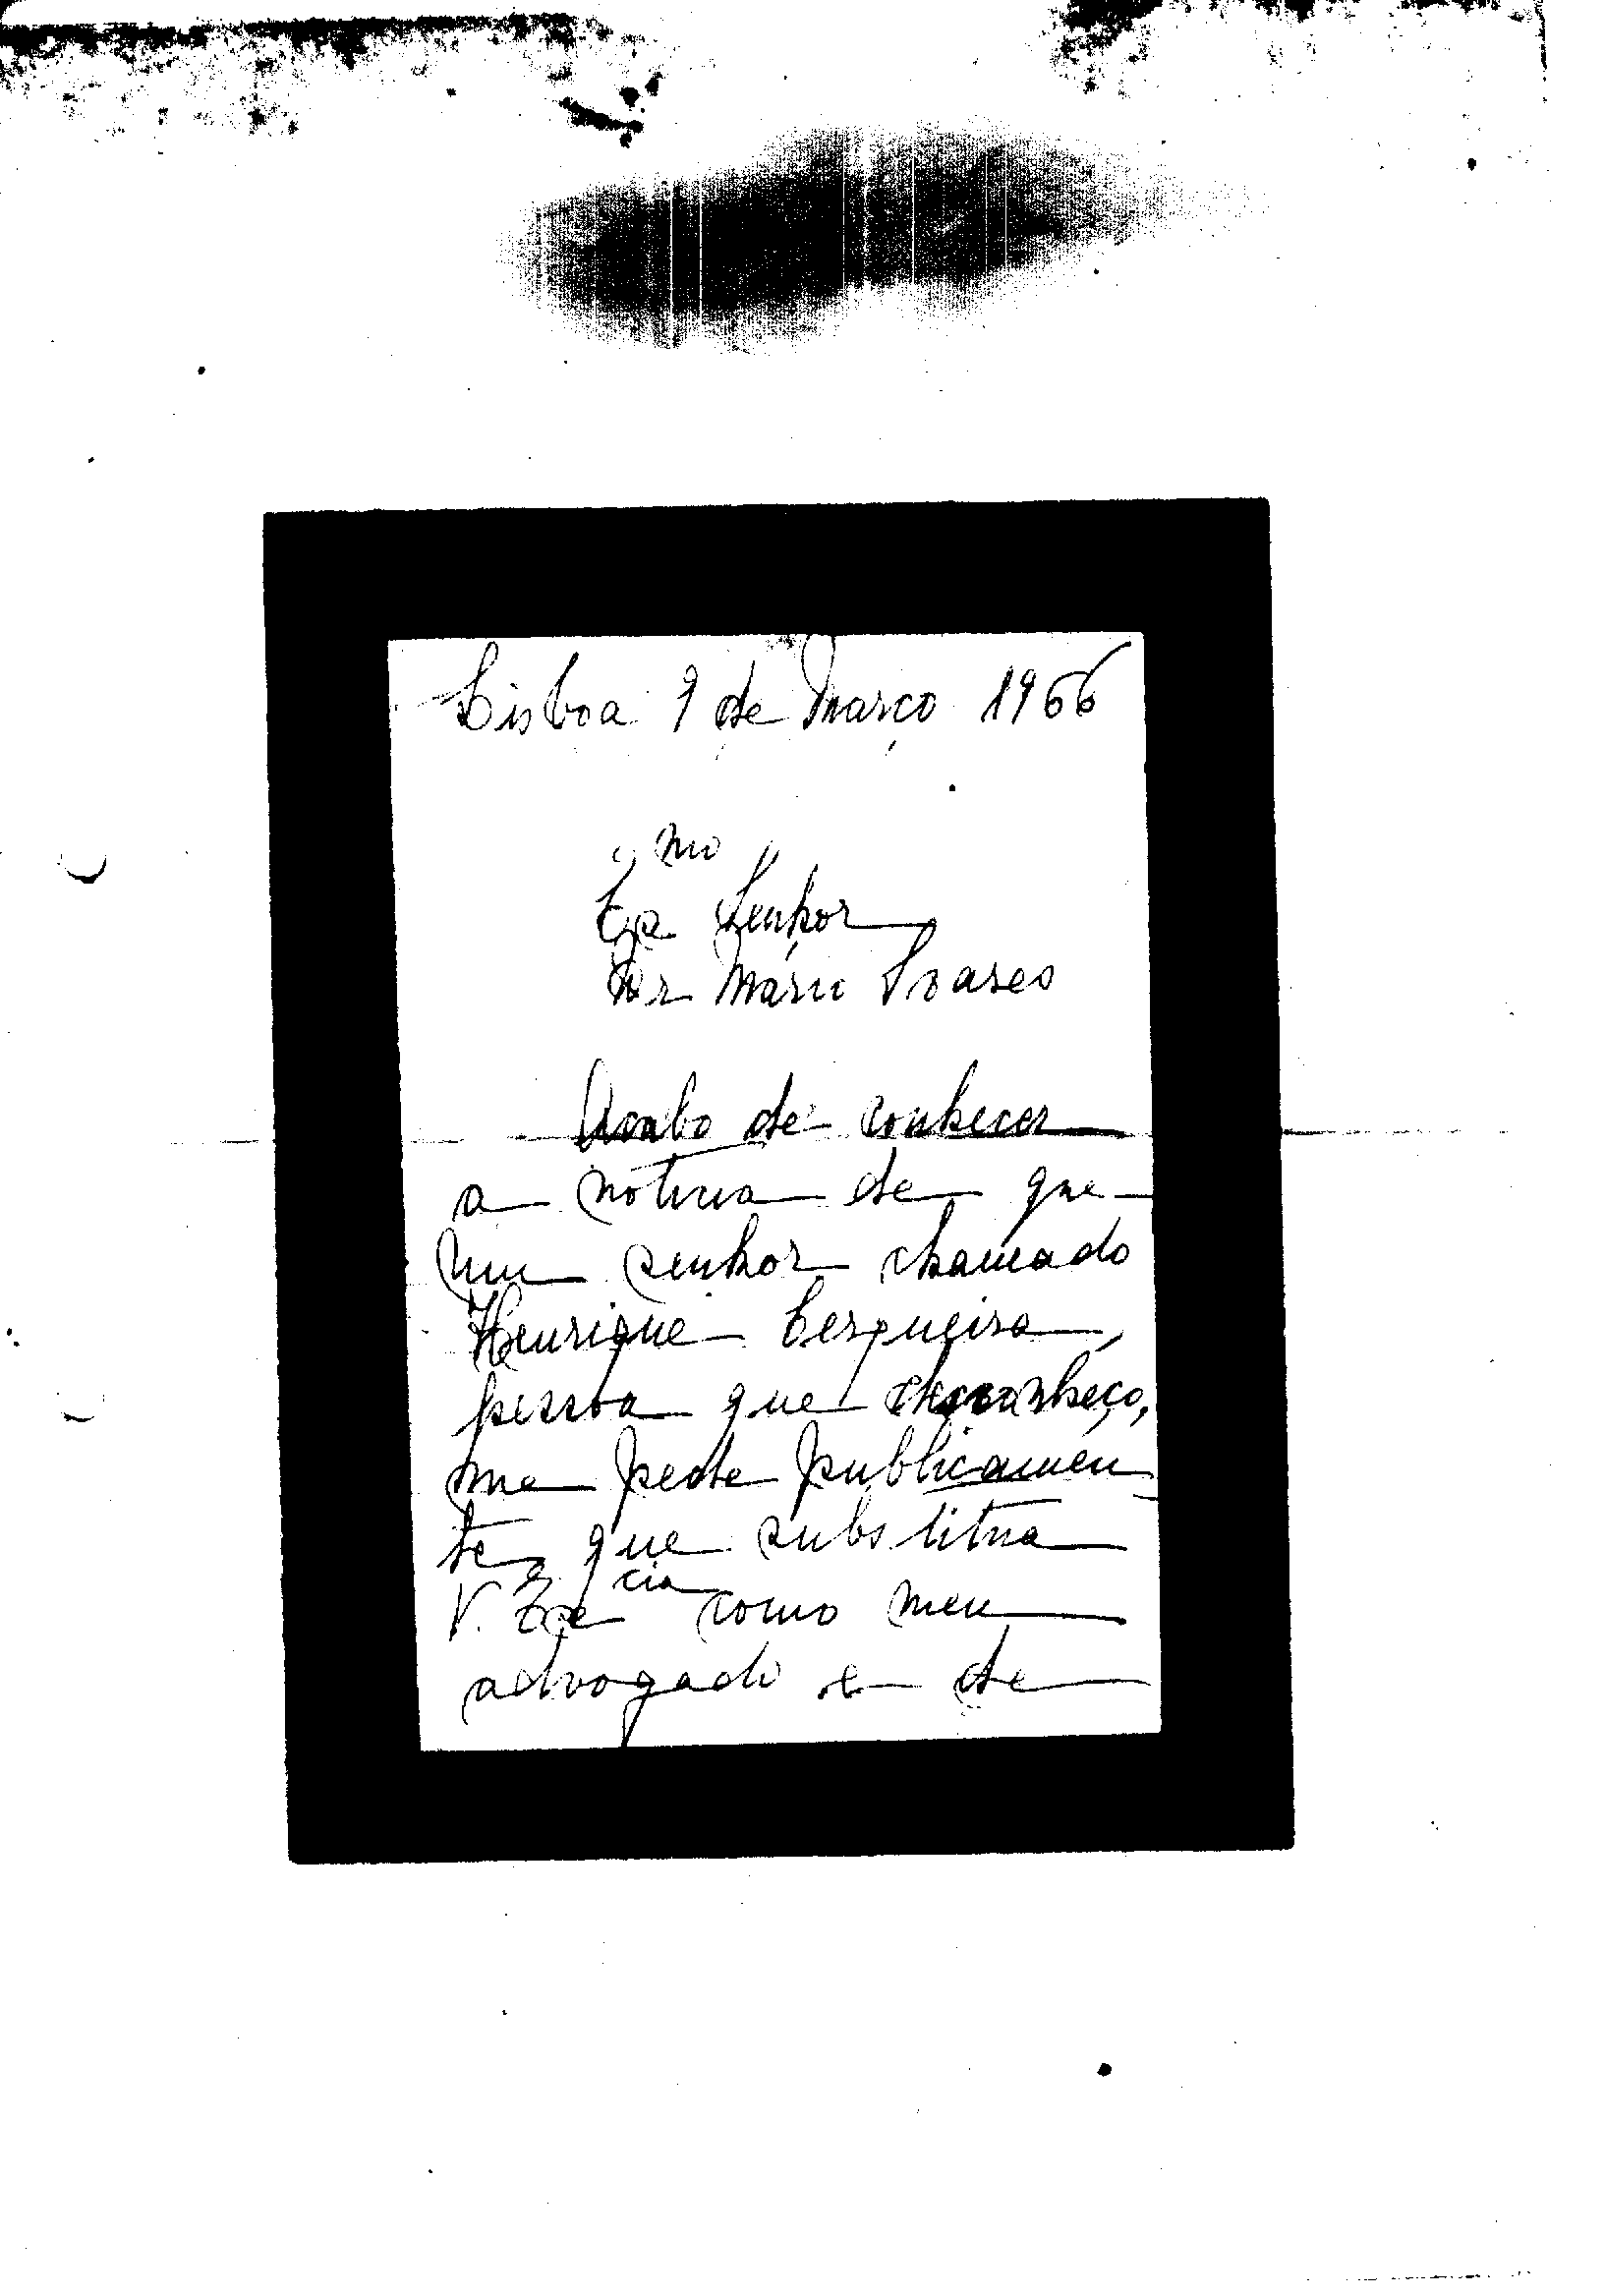 Lisboa 9 de Março 1966
Exmo Senhor
Dr Mário Soares
Acabo de conhecer
a noticia de que
um senhor chamado
Henrique Cerqueira,
pessoa que desconheço,
me pede publicamen
te, que substitua
V. Excia como meu
advogado e de